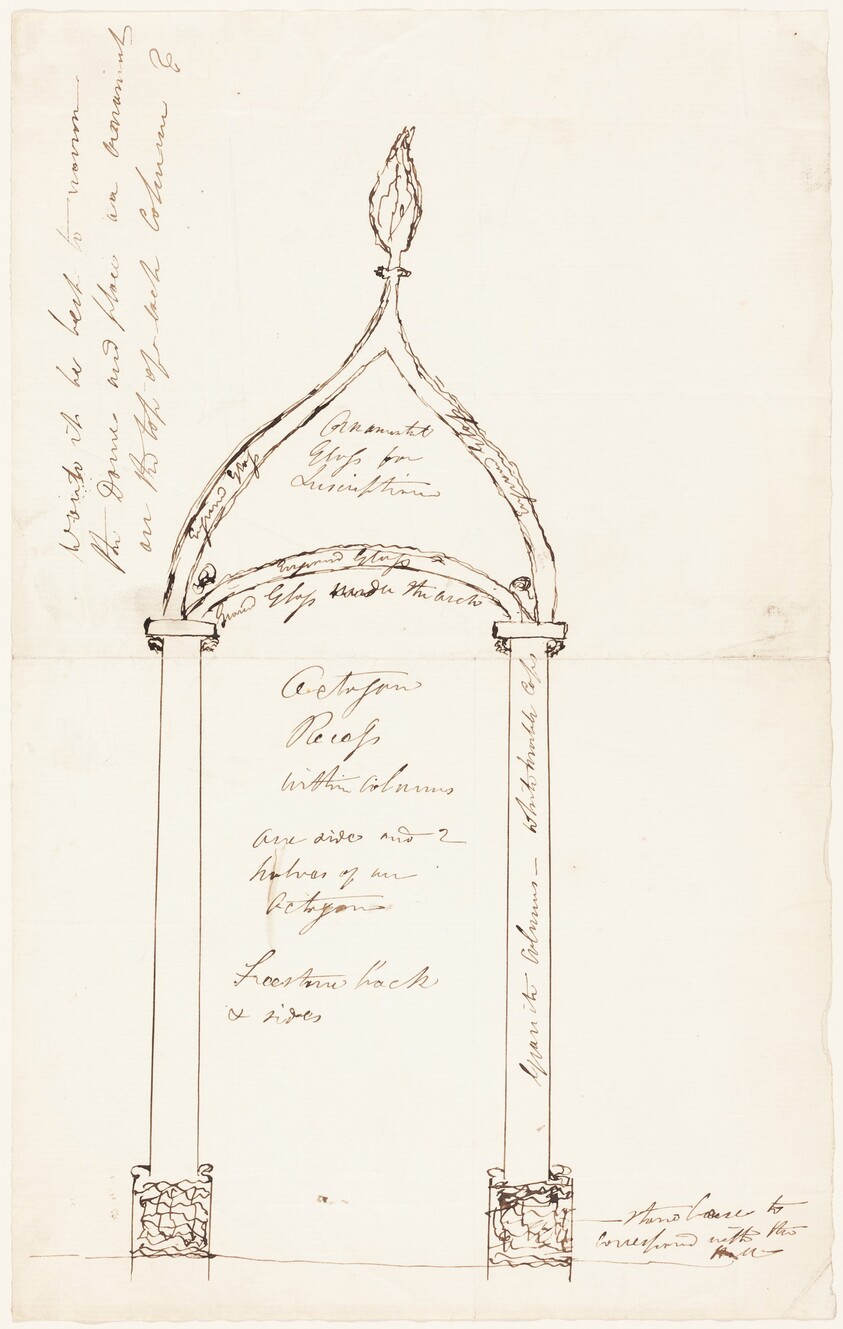 Would it be best to narrow
the Dome and place an ornament
on the top of each Column &
Ornamental
Glass for
Inscriptions
Engraved Glass
Engraved Glass
Engraved Glass
Ground Glass under the arch
Octagon
Recess
within Columns
one side and 2
halves of an
Octagon
Freestone back
& sides
Granite Columns — White marble Caps
stone base to
correspond with the